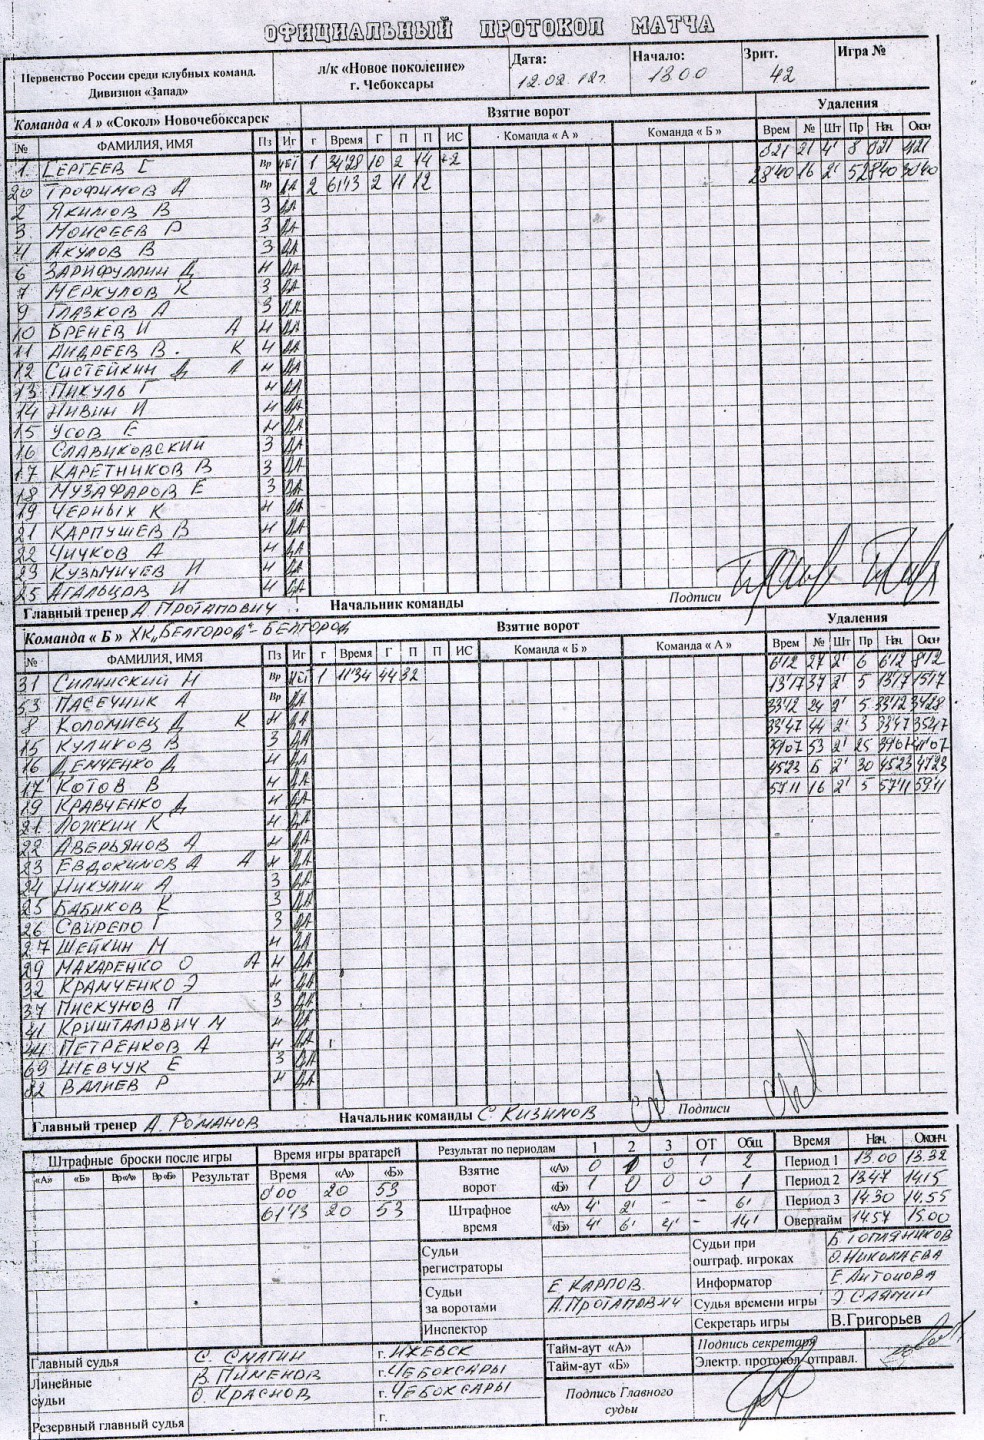 ОФИЦИАЛЬНЫЙ ПРОТОКОЛ МАТЧА
Первенство России среди клубных команд. Дивизион «Запад» л/к «Новое поколение» г. Чебоксары Дата: 12.02.12г. Начало: 13 00 Зрит. 42 Игра №
Команда « А » «Сокол» Новочебоксарск Взятие ворот Удаления
№ ФАМИЛИЯ, ИМЯ Пз Иг г Время Г П П ИС Команда « А » Команда « Б » Врем № Шт Пр Нач. Окон
1 СЕРГЕЕВ С Вр НЕТ 1 34'28 10 2 14 +2 8'21 21 4' 8 8'21
20 ТРОФИМОВ А Вр ДА 2 61'13 2 11 12 28'40 16 2' 5 28'40 30'40
2 ЯКИМОВ В З ДА
3 МОИСЕЕВ Р З ДА
4 АКУЛОВ В З ДА
6 ЗАРИФУЛЛИН Д Н ДА
7 МЕРКУЛОВ К З ДА
9 ГЛАЗКОВ А З ДА
10 БРЕНЕВ И А Н ДА
11 АНДРЕЕВ В. К Н ДА
12 СИСТЕЙКИН Д А Н ДА
13 ПИКУЛЬ Г Н ДА
14 НИВИН И Н ДА
15 УСОВ Е Н ДА
16 СЛАВИКОВСКИЙ З ДА
17 КАРЕТНИКОВ В З ДА
18 МУЗАФАРОВ Е З ДА
19 ЧЕРНЫХ К Н ДА
21 КАРПУШЕВ В Н ДА
22 ЧИЧКОВ А Н ДА
23 КУЗЬМИЧЕВ И Н ДА
25 АГАЛЬЦОВ И Н ДА
Главный тренер А. ПРОТАПОВИЧ Начальник команды Подписи
Команда « Б » ХК„БЕЛГОРОД"-БЕЛГОРОД Взятие ворот Удаления
№ ФАМИЛИЯ, ИМЯ Пз Иг г Время Г П П ИС Команда « Б » Команда « А » Врем № Шт Пр Нач. Окон
31 СИЛИНСКИЙ Н Вр 1 11'34 44 32 6'12 27 2' 6 6'12 8'12
53 ПАСЕЧНИК А Вр ДА 13'17 37 2' 5 13'17 15'17
8 КОЛОМИЕЦ Д К Н ДА 33'12 24 2' 5 33'12 34'28
15 КУЛИКОВ В З ДА 33'47 44 2' 3 33'47 35'47
16 ДЕМЧЕНКО Д Н ДА 39'07 53 2' 25 39'07 41'07
17 КОТОВ В Н ДА 45'23 Б 2' 30 45'23 47'23
19 КРАВЧЕНКО Д Н ДА 57'11 16 2' 5 57'11 59'11
21 ЛОЖКИН К Н ДА
22 АВЕРЬЯНОВ А Н ДА
23 ЕВДОКИМОВ А А Н ДА
24 НИКУЛИН А З ДА
25 БАБИКОВ К З ДА
26 СВИРЕПО Г З ДА
27 ШЕЙКИН М Н ДА
29 МАКАРЕНКО О А Н ДА
32 КРАМЧЕНКО Э Н ДА
37 ПИСКУНОВ П З ДА
41 КРИШТАЛОВИЧ М Н ДА
44 ПЕТРЕНКОВ А Н ДА
69 ШЕВЧУК Е З ДА
82 ВАЛИЕВ Р Н ДА
Главный тренер А. РОМАНОВ Начальник команды С. КИЗИМОВ Подписи
Штрафные броски после игры Время игры вратарей Результат по периодам 1 2 3 ОТ Общ. Время Нач. Оконч.
«А» «Б» Вр«А» Вр«Б» Результат Время «А» «Б» Взятие ворот «А» 0 1 0 1 2 Период 1 13.00 13.32
0'00 20 53 «Б» 1 0 0 0 1 Период 2 13.47 14.15
61'13 20 53 Штрафное время «А» 4' 2' - - 6' Период 3 14.30 14.55
«Б» 4' 6' 4' - 14' Овертайм 14.57 15.00
Судьи регистраторы Судьи при оштраф. игроках Б. ТОПЛЯНИКОВ
О. НИКОЛАЕВА
Судьи за воротами Е. КАРПОВ Информатор Е. АНТОНОВА
А. ПРОТАПОВИЧ Судья времени игры Э. САЯНИН
Инспектор Секретарь игры В.Григорьев
Главный судья С. СМАГИН г. ИЖЕВСК Тайм-аут «А» Подпись секретаря
Линейные судьи В. ПИМЕНОВ г. ЧЕБОКСАРЫ Тайм-аут «Б» Электр. протокол отправл.
О. КРАСНОВ г. ЧЕБОКСАРЫ Подпись Главного судьи
Резервный главный судья г.